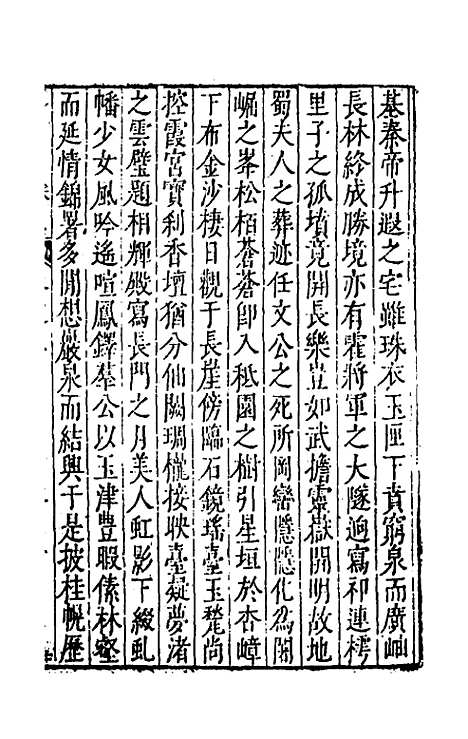 墓秦帝升遐之宅雖珠衣玉匣下賁窮泉而廣岫
長林終成勝境亦有霍將軍之大隧逈寫祁連樗
里子之孤墳竟開長樂豈如武擔靈嶽開明故地
蜀夫人之葬迹任文公之死所岡巒隱隱化爲闍
崛之峯松栢蒼蒼卽入秪園之樹引星垣於杏嶂
下布金沙棲日觀于長崖傍臨石鏡瑤臺玉甃尚
控霞宮寶刹香壇猶分仙闕琱櫳接映臺凝夢渚
之雲璧題相輝殿寫長門之月美人虹影下綴虬
幡少女風吟遙喧鳳鐸羣公以玉津豊暇傃林壑
而延情錦署多閒想巖泉而結興于是披桂幌歷